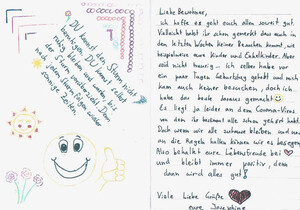 DU kannst den Sturm nicht
beruhigen. DU kannst selbst
ruhig bleiben und warten, bis
der Sturm vorüberzieht, denn
nach jedem Sturm folgen wieder
sonnige Zeiten.
Liebe Bewohner,
ich hoffe es geht euch allen soweit gut.
Vielleicht habt ihr schon gemerkt dass euch in
den letzten Wochen keiner besuchen kommt, wie
beispielsweise eure Kinder und Enkelkinder. Aber
seid nicht traurig... Ich selber habe vor
ein paar Tagen Geburtstag gehabt und mich
kam auch keiner besuchen, doch ich
habe das beste daraus gemacht
Es liegt ja leider an dem Corona-Virus
von dem ihr bestimmt alle schon gehört habt.
Doch wenn wir alle zuhause bleiben und uns
an die Regeln halten können wir es besiegen.
Also behaltet eure Lebensfreude bei
und bleibt immer positiv, denn
dann wird alles gut!
Viele Liebe Grüße
eure Josephine